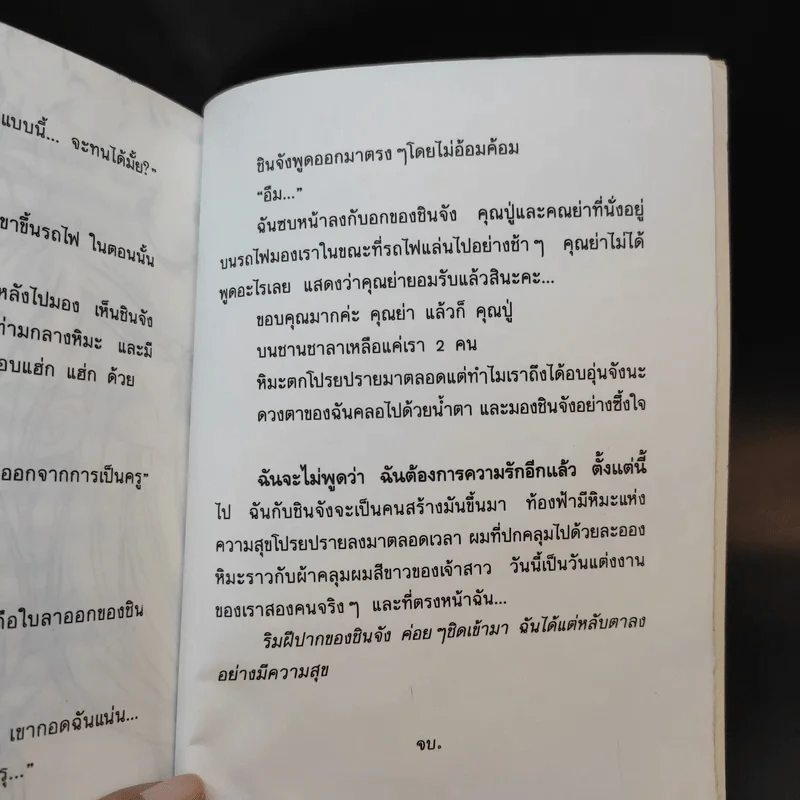 แบบนี้... จะทนได้มั้ย?”
ขาขึ้นรถไฟ ในตอนนั้น
หลังไปมอง เห็นชินจัง
ท่ามกลางหิมะ และมี
อบแฮ่ก แฮ่ก ด้วย
ออกจากการเป็นครู”
ถือใบลาออกของชิน
เขากอดฉันแน่น...
รุ...”
ชินจังพูดออกมาตรง ๆโดยไม่อ้อมค้อม
“อืม...”
ฉันซบหน้าลงกับอกของชินจัง คุณปู่และคณย่าที่นั่งอยู่
บนรถไฟมองเราในขณะที่รถไฟแล่นไปอย่างช้า ๆ คุณย่าไม่ได้
พูดอะไรเลย แสดงว่าคุณย่ายอมรับแล้วสินะคะ...
ขอบคุณมากค่ะ คุณย่า แล้วก็ คุณปู่
บนชานชาลาเหลือแค่เรา 2 คน
หิมะตกโปรยปรายมาตลอดแต่ทำไมเราถึงได้อบอุ่นจังนะ
ดวงตาของฉันคลอไปด้วยน้ำตา และมองชินจังอย่างซึ้งใจ
ฉันจะไม่พูดว่า ฉันต้องการความรักอีกแล้ว ตั้งแต่นี้
ไป ฉันกับชินจังจะเป็นคนสร้างมันขึ้นมา ท้องฟ้ามีหิมะแห่ง
ความสุขโปรยปรายลงมาตลอดเวลา ผมที่ปกคลุมไปด้วยละออง
หิมะราวกับผ้าคลุมผมสีขาวของเจ้าสาว วันนี้เป็นวันแต่งงาน
ของเราสองคนจริง ๆ และที่ตรงหน้าฉัน...
ริมฝีปากของชินจัง ค่อย ๆชิดเข้ามา ฉันได้แต่หลับตาลง
อย่างมีความสุข
จบ.